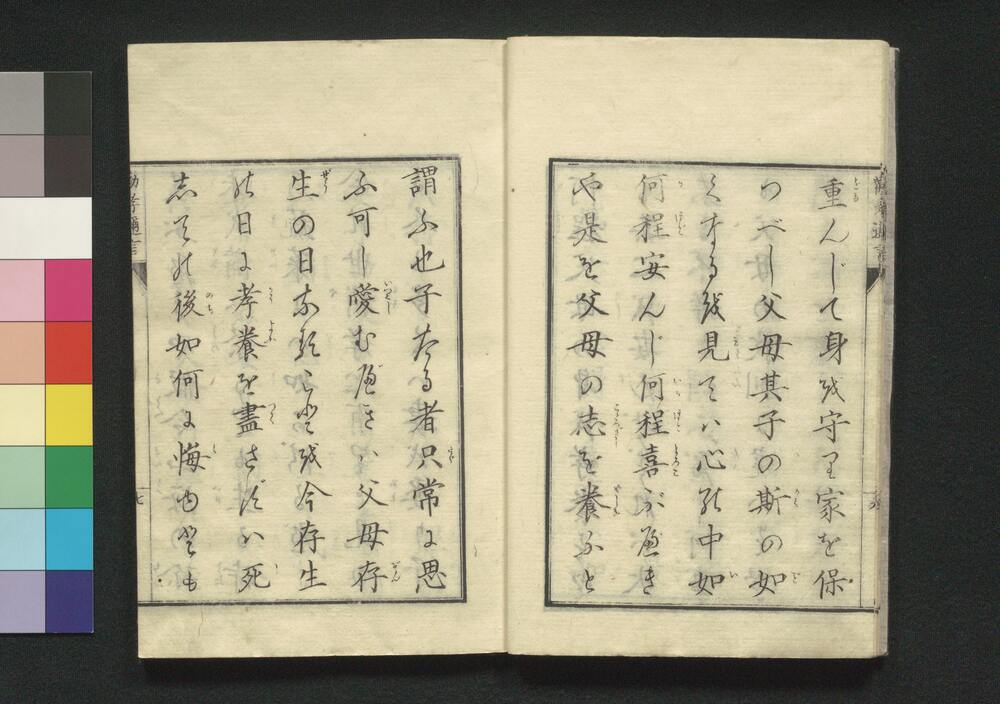 勸孝邇言
重んじて身を守り家を保
つべし父母其子の斯の如
くなるを見ては心の中如
何程安んじ何程喜ぶべき
や是を父母の志を養ふと
謂ふ也子たる者只常に思
ふ可し愛むべきは父母存
生の日なることを今存生
の日に孝養を盡さずは死
しての後如何に悔ゆとも
勸孝邇言
七